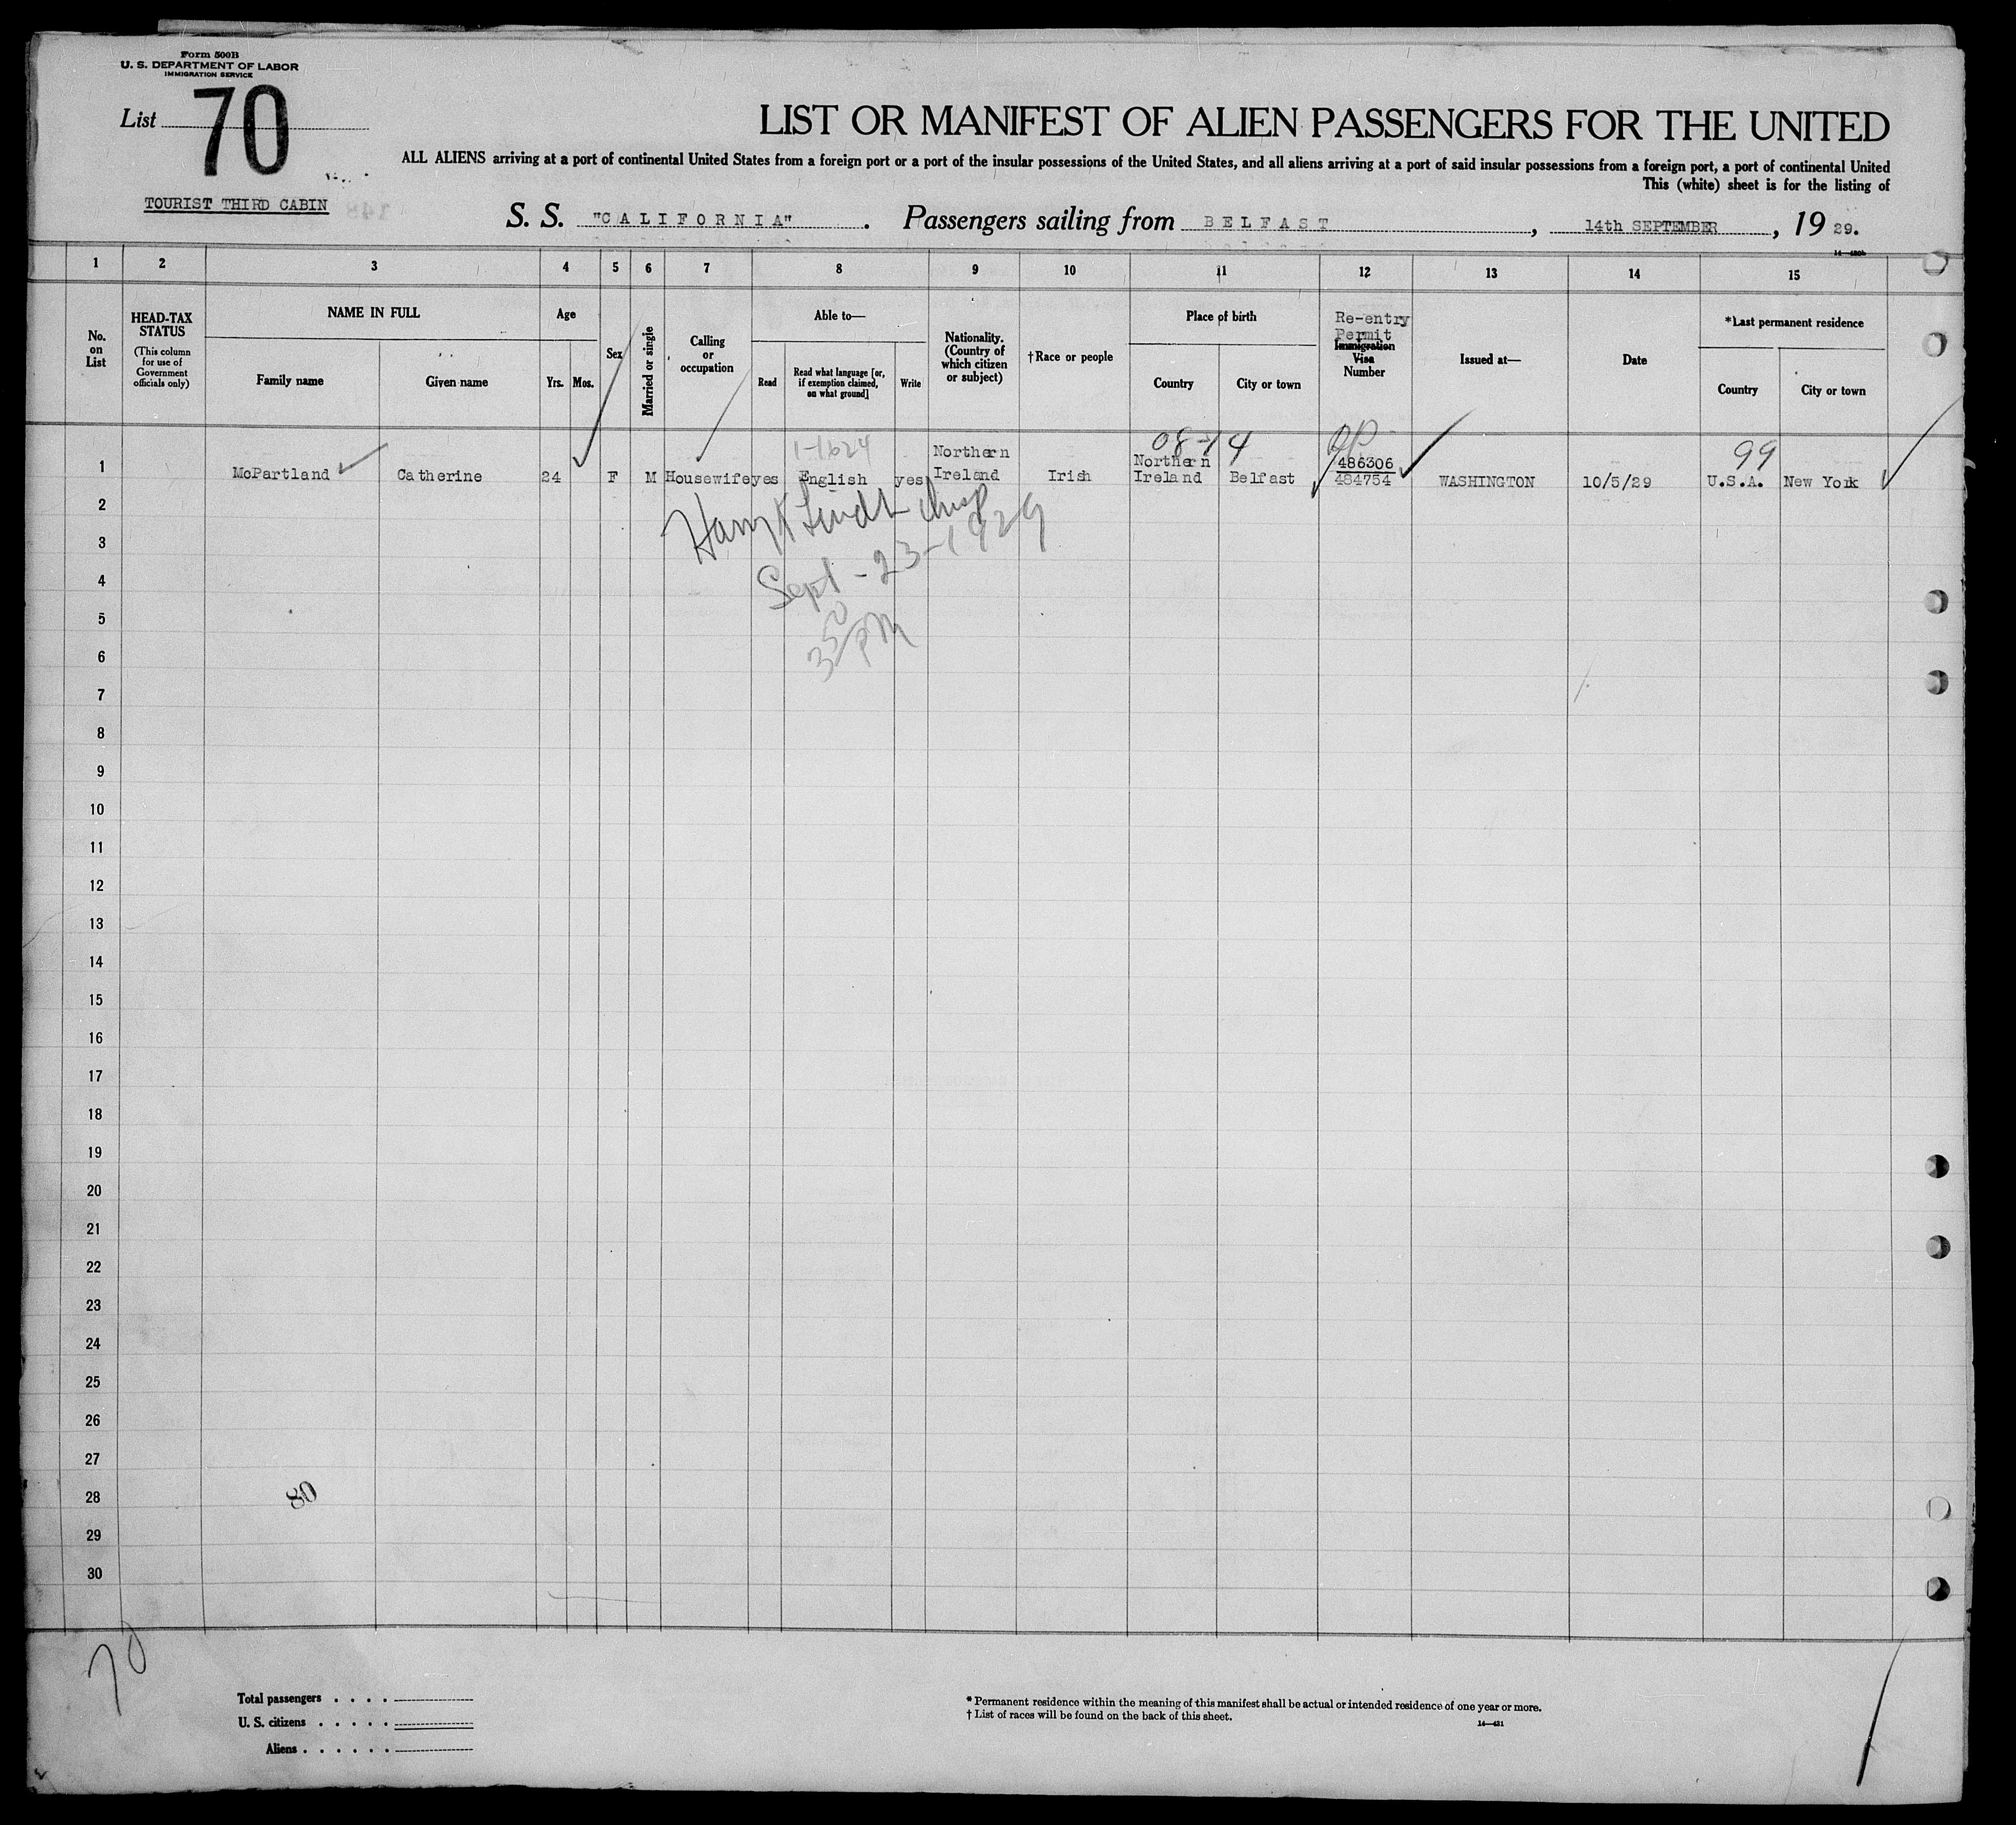 Form 500B
U. S. DEPARTMENT OF LABOR
IMMIGRATION SERVICE
List 70
LIST OR MANIFEST OF ALIEN PASSENGERS FOR THE UNITED
ALL ALIENS arriving at a port of continental United States from a foreign port or a port of the insular possessions of the United States, and all aliens arriving at a port of said insular possessions from a foreign port, a port of continental United
This (white) sheet is for the listing of
TOURIST THIRD CABIN
S. S. "CALIFORNIA". Passengers sailing from BELFAST, 14th SEPTEMBER, 1929.
1 2 3 4 5 6 7 8 9 10 11 12 13 14 15
No. on List
HEAD-TAX STATUS
(This column for use of Government officials only)
NAME IN FULL
Family name
Given name
Age
Yrs.
Mos.
Sex
Married or single
Calling or occupation
Able to—
Read
Read what language [or, if exemption claimed, on what ground]
Write
Nationality. (Country of which citizen or subject)
†Race or people
Place of birth
Country
City or town
Re-entry Permit
Immigration Visa Number
Issued at—
Date
*Last permanent residence
Country
City or town
08-14
99
1 McPartland Catherine 24 F M Housewife yes English yes Northern Ireland Irish Northern Ireland Belfast 486306 484754 WASHINGTON 10/5/29 U.S.A. New York
2
3
4
5
6
7
8
9
10
11
12
13
14
15
16
17
18
19
20
21
22
23
24
25
26
27
28
29
30
Sept-23-1929
3 50 PM
80
70
Total passengers
U. S. citizens
Aliens
* Permanent residence within the meaning of this manifest shall be actual or intended residence of one year or more.
† List of races will be found on the back of this sheet.
14—431